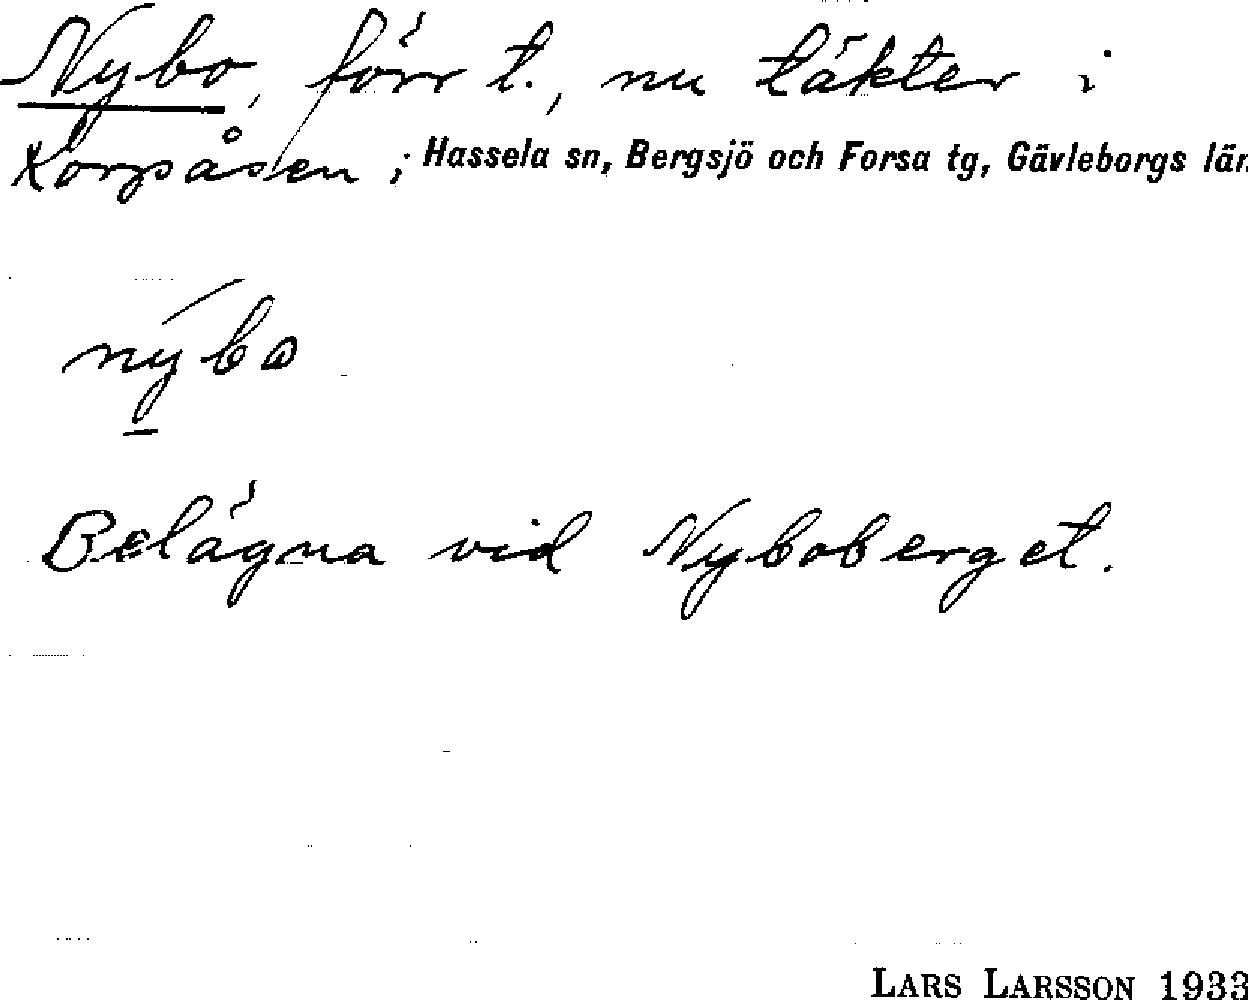 Nybo, förr t., nu täkter i
Korpåsen; Hassela sn, Bergsjö och Forsa tg, Gävleborgs län
nýbo
Belägna vid Nyboberget.
LARS LARSSON 1933